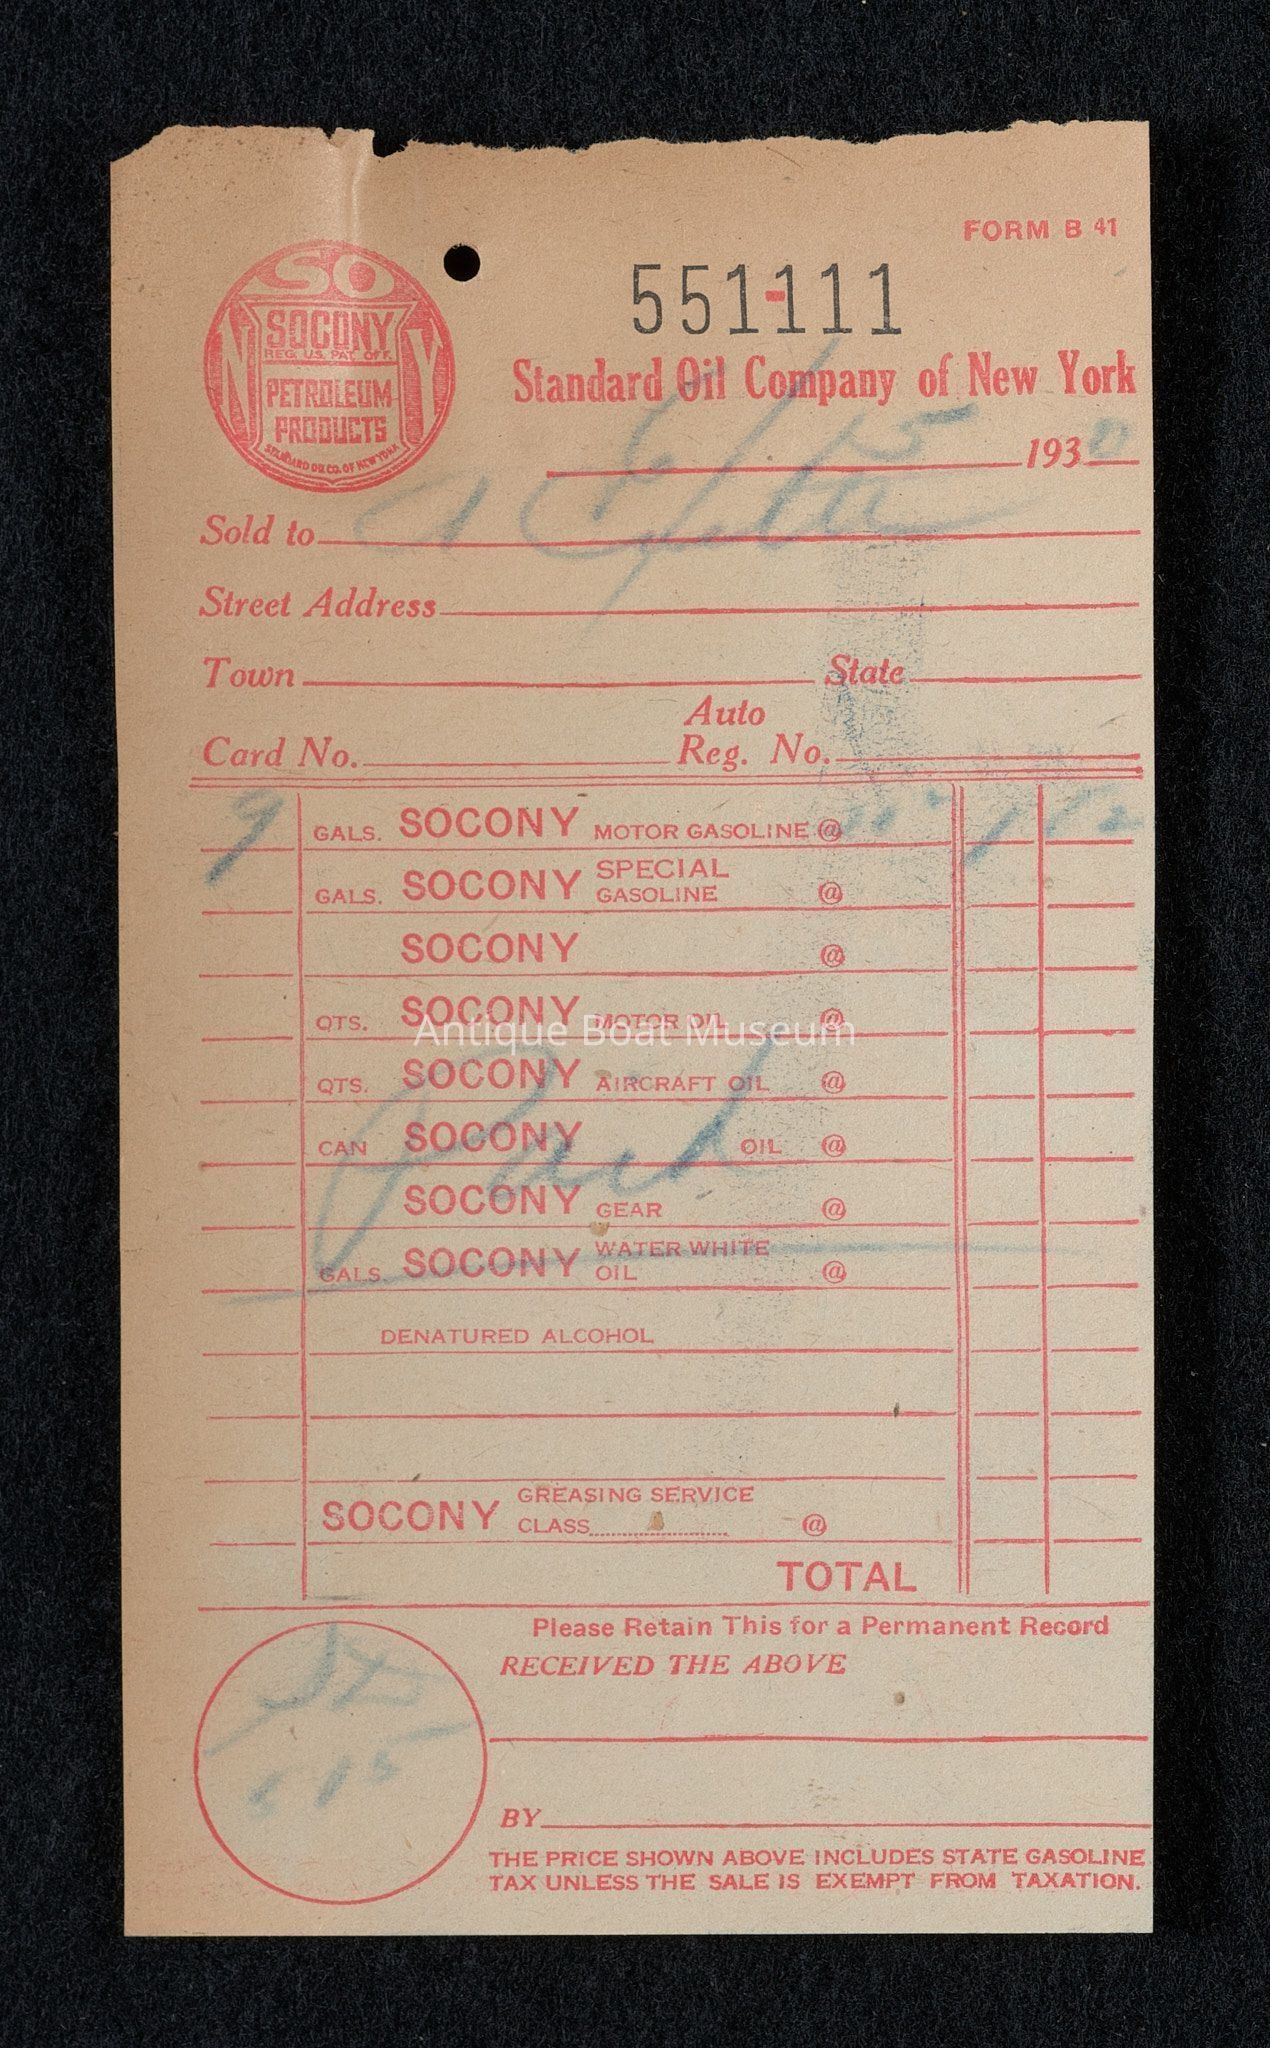 FORM B 41
SO
NY
SOCONY
REG. U.S. PAT. OFF.
PETROLEUM
PRODUCTS
STANDARD OIL CO. OF NEW YORK
551-111
Standard Oil Company of New York
6/15 1930
Sold to
Street Address
Town State
Auto
Card No. Reg. No.
9 GALS. SOCONY MOTOR GASOLINE @
GALS. SOCONY SPECIAL GASOLINE @
SOCONY @
QTS. SOCONY MOTOR OIL @
Antique Boat Museum
QTS. SOCONY AIRCRAFT OIL @
CAN SOCONY OIL @
Paid
SOCONY GEAR @
GALS. SOCONY WATER WHITE OIL @
DENATURED ALCOHOL
SOCONY GREASING SERVICE
CLASS @
TOTAL
Please Retain This for a Permanent Record
RECEIVED THE ABOVE
515
BY
THE PRICE SHOWN ABOVE INCLUDES STATE GASOLINE
TAX UNLESS THE SALE IS EXEMPT FROM TAXATION.